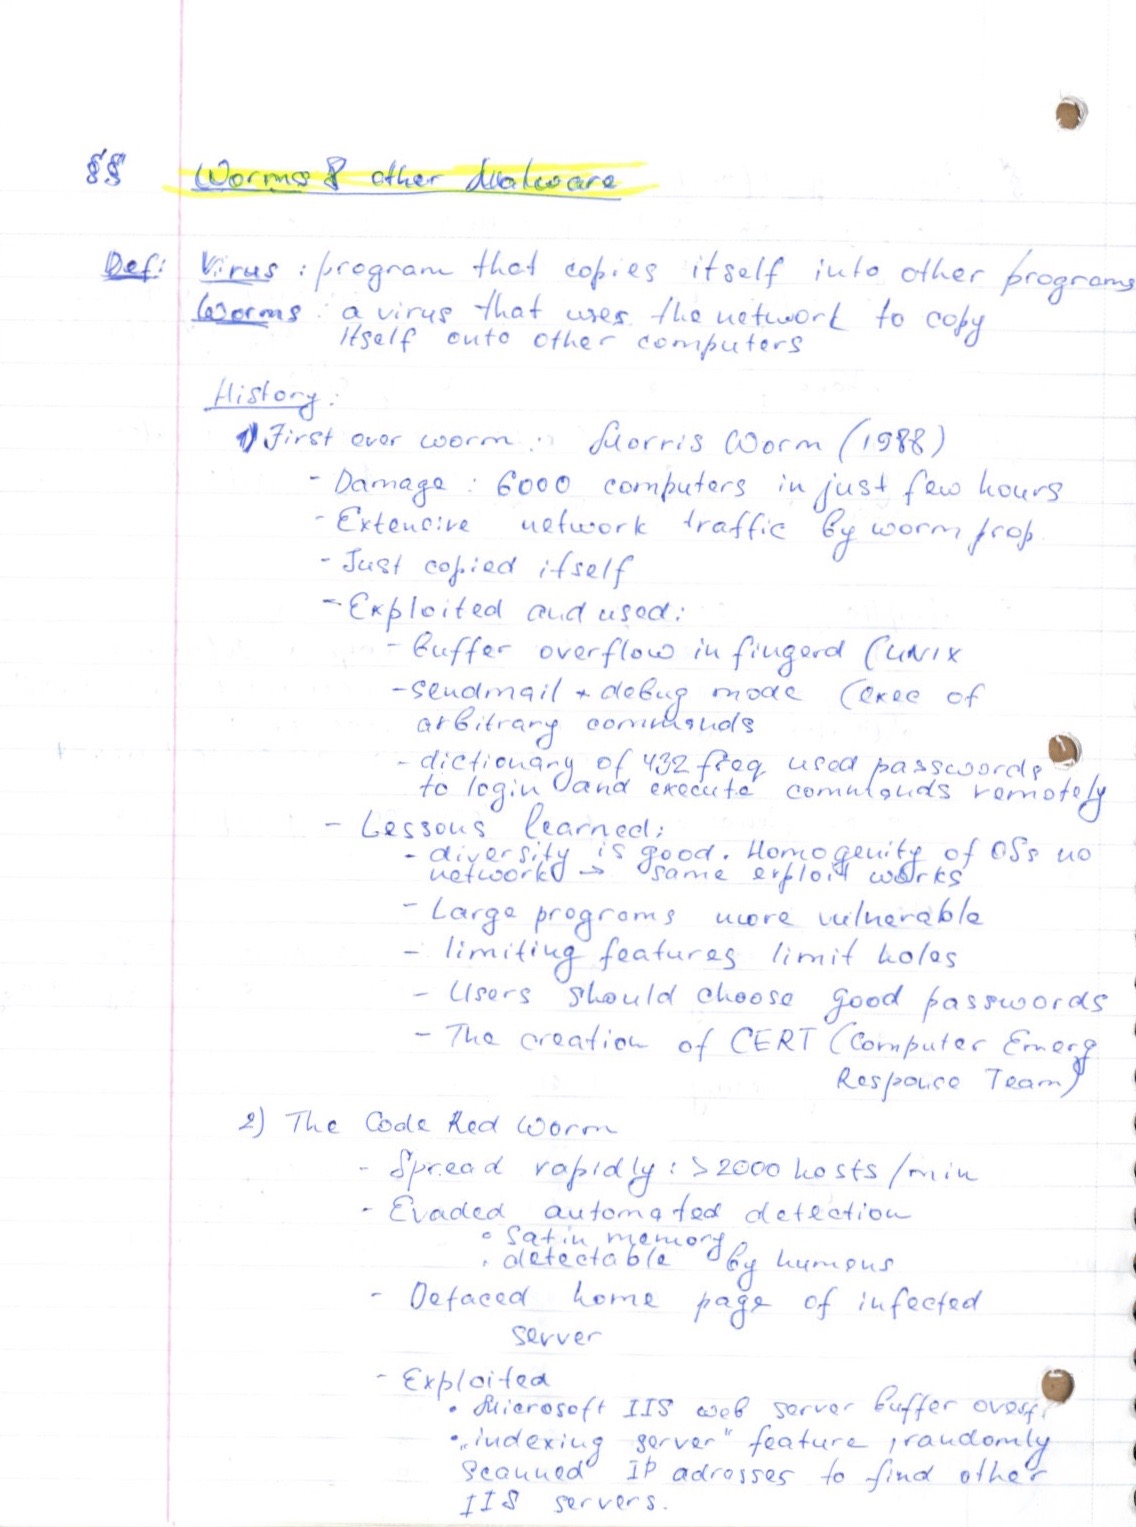 §§ Worms & other Malware
Def: Virus : program that copies itself into other programs
Worms : a virus that uses the network to copy
itself onto other computers
History:
1) First ever worm : Morris Worm (1988)
- Damage : 6000 computers in just few hours
- Extensive network traffic by worm prop.
- Just copied itself
- Exploited and used:
- Buffer overflow in fingerd (UNIX
- sendmail + debug mode (exec of
arbitrary commands
- dictionary of 432 freq used passwords
to login and execute commands remotely
- Lessons learned:
- diversity is good. Homogenity of OSs no
network → same exploit works
- Large programs more vulnerable
- limiting features limit holes
- Users should choose good passwords
- The creation of CERT (Computer Emerg
Response Team)
2) The Code Red Worm
- Spread rapidly : >2000 hosts/min
- Evaded automated detection
• Sat in memory
• detectable by humans
- Defaced home page of infected
server
- Exploited
• Microsoft IIS web server buffer overf.
• „indexing server" feature, randomly
scanned IP adresses to find other
IIS servers.